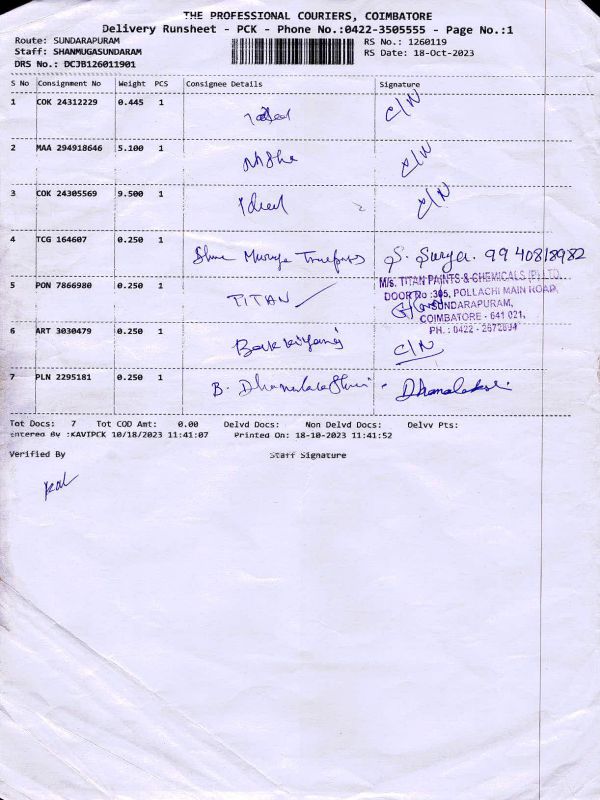 THE PROFESSIONAL COURIERS, COIMBATORE
Delivery Runsheet - PCK - Phone No.:0422-3505555 - Page No.:1
Route: SUNDARAPURAM RS No.: 1260119
Staff: SHANMUGASUNDARAM RS Date: 18-Oct-2023
DRS No.: DCJB126011901
S No Consignment No Weight PCS Consignee Details Signature
1 COK 24312229 0.445 1 C/N
2 MAA 294918646 5.100 1 C/N
3 COK 24305569 9.500 1 Ideal C/N
4 TCG 164607 0.250 1 S. Surya. 9940818982
M/s. TITAN PAINTS & CHEMICALS (P) LTD.
5 PON 7866980 0.250 1 TITAN DOOR No :305, POLLACHI MAIN ROAD,
SUNDARAPURAM,
COIMBATORE - 641 021,
PH. : 0422 - 2672694
6 ART 3030479 0.250 1 C/N
7 PLN 2295181 0.250 1 B. Dhanalakshmi
Tot Docs: 7 Tot COD Amt: 0.00 Delvd Docs: Non Delvd Docs: Delvv Pts:
Entered By :KAVIPCK 10/18/2023 11:41:07 Printed On: 18-10-2023 11:41:52
Verified By Staff Signature